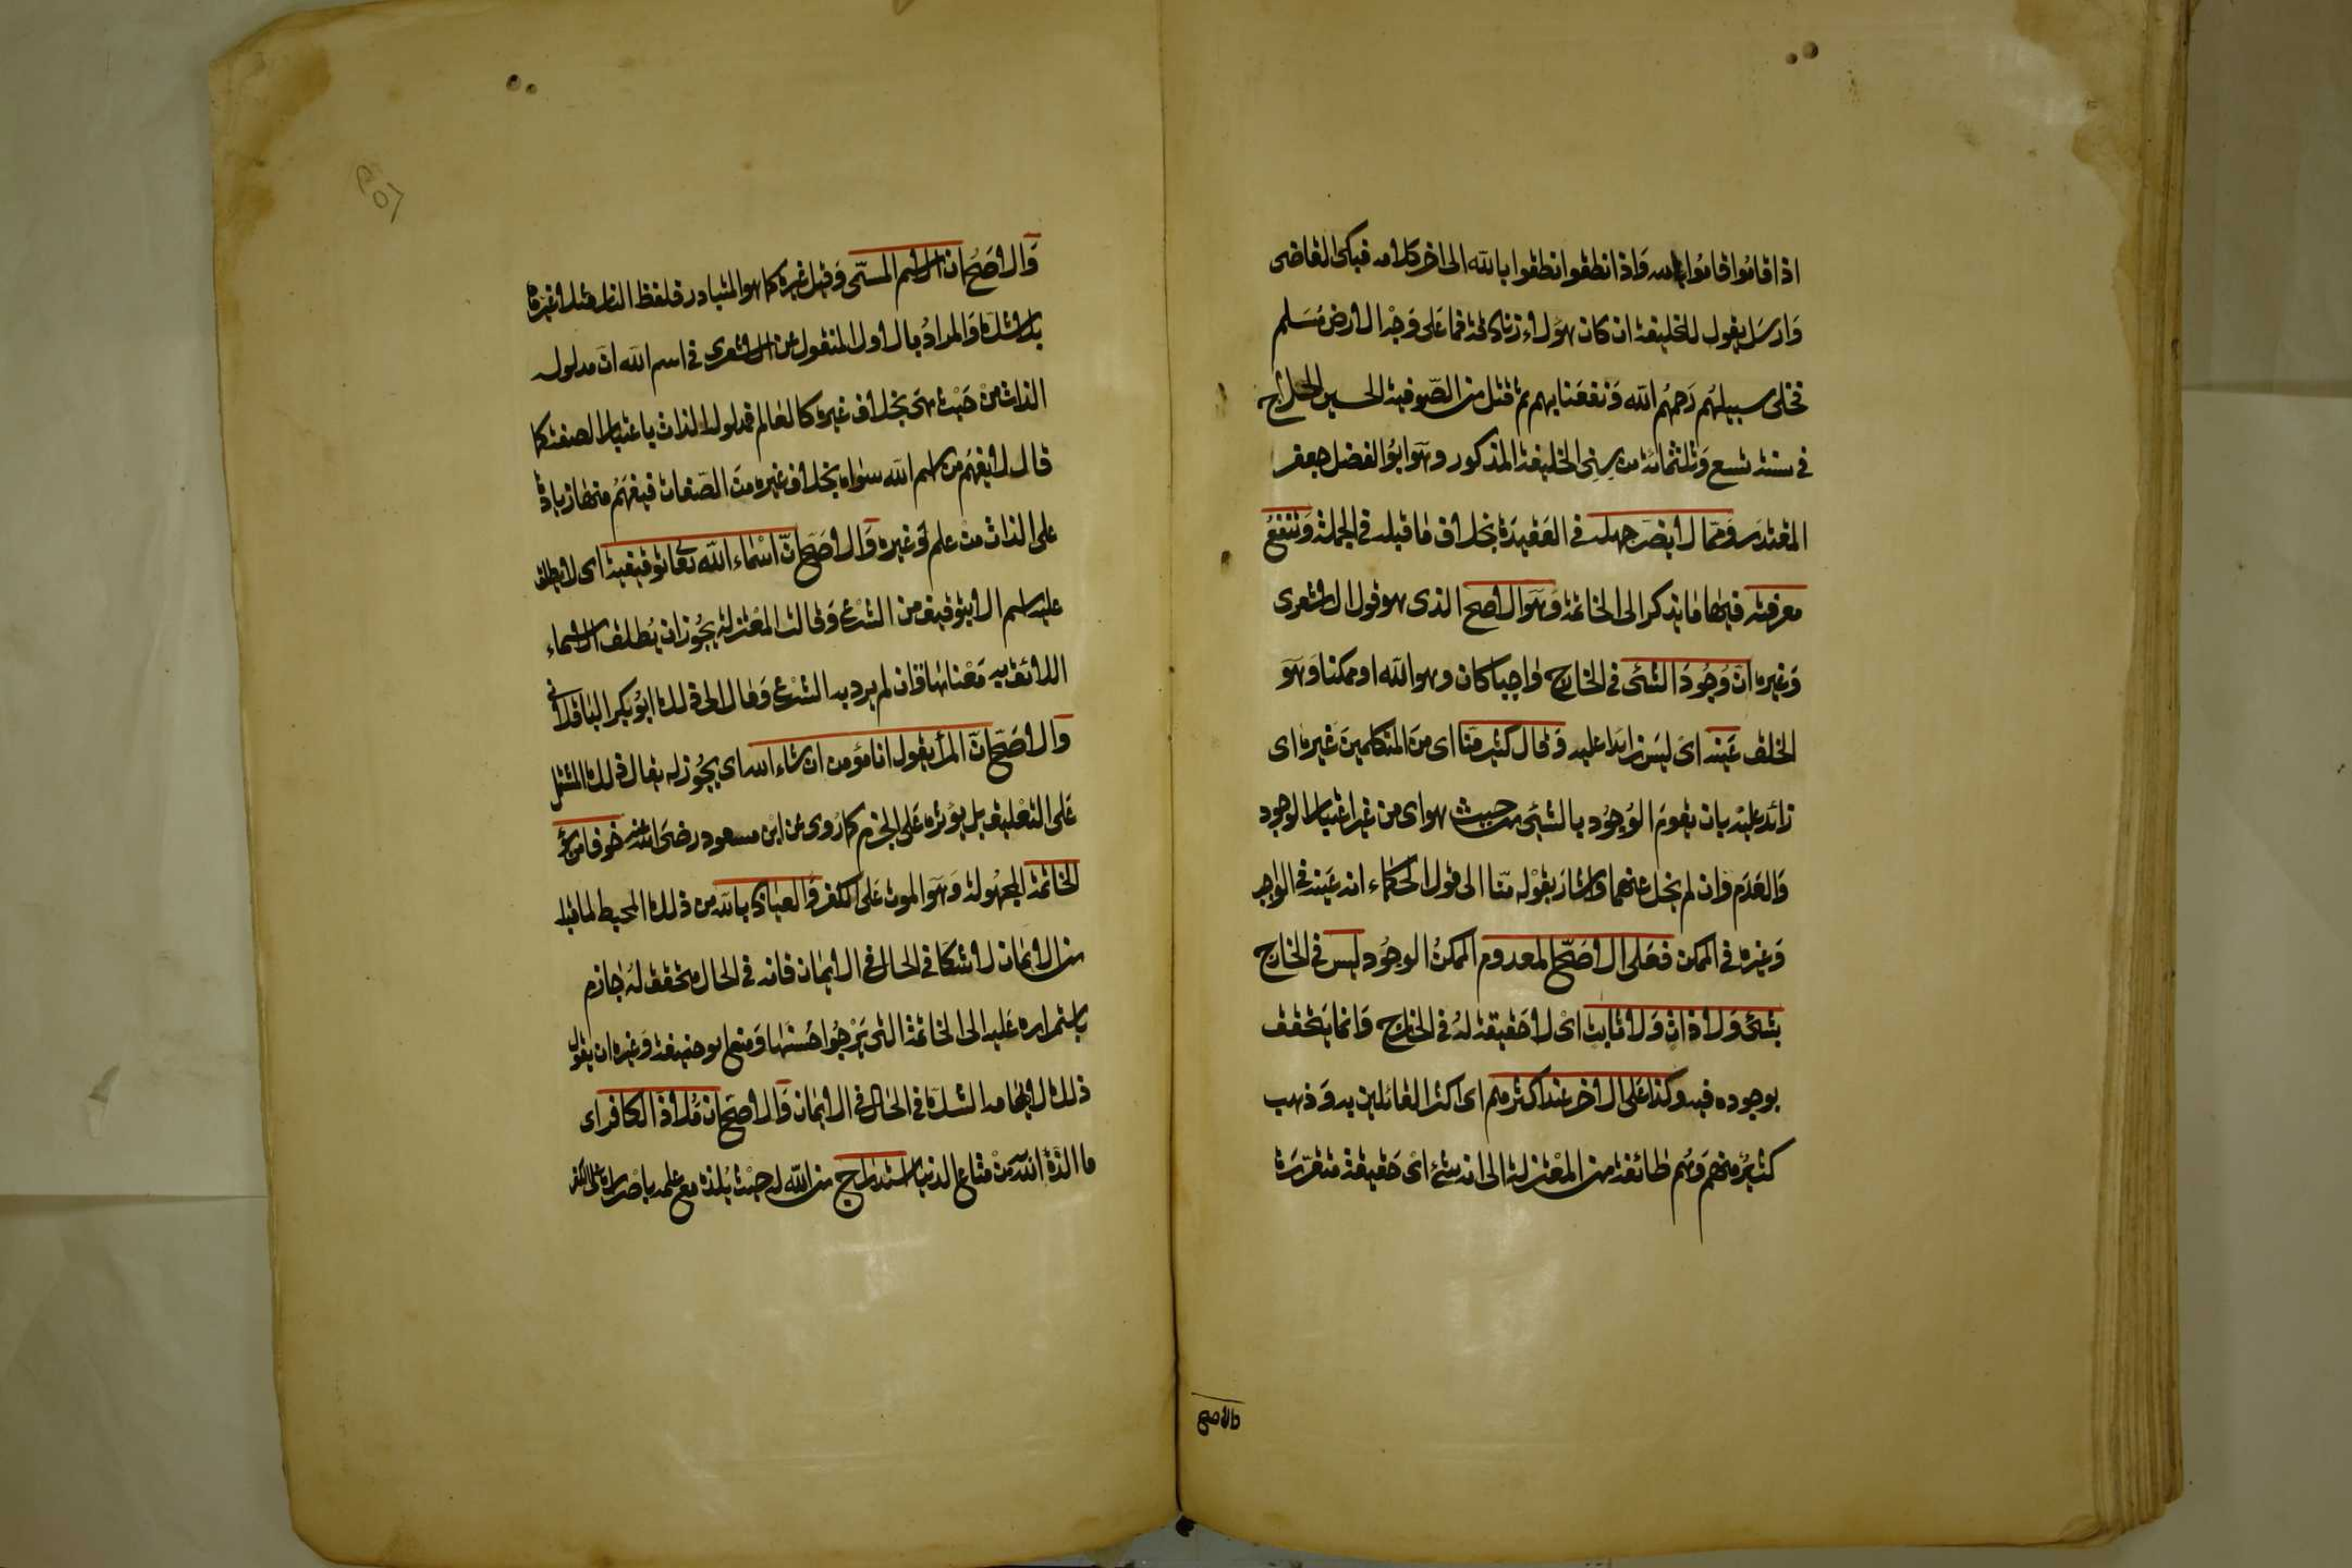 اذا قاموا قاموا بالله واذا نطقوا نطقوا بالله الى اخر كلامه فبكى القاضى
وارسل يقول للخليفة ان كان هؤلاء زنادقة فما على وجه الارض مسلم
فخلى سبيلهم رحمهم الله ونفعنا بهم ثم قتل من الصوفية الحسين الحلاج
فى سنة تسع وثلثمائة من سنى الخليفة المذكور وهو ابو الفضل جعفر
المقتدر ومما لا يضر جهله فى العقيدة بخلاف ما قبله فى الجملة وتنفع
معرفته فيها ما يذكر الى الخاتمة وهو الاصح الذى هو قول الاشعرى
وغيره ان وجود الشئ فى الخارج واجبا كان وهو الله او ممكنا وهو
الخلق عينه اى ليس زائدا عليه وقال كثير منا اى من المتكلمين غيره اى
زائد عليه بان يقوم الوجود بالشئ من حيث هو اى من غير اعتبار الوجود
والعدم وان لم يخل عنهما واشار بقوله منا الى قول الحكماء انه عينه فى الواجب
وغيره فى الممكن فعلى الاصح المعدوم الممكن الوجود ليس فى الخارج
بشئ ولا ذات ولا ثابت اى لا حقيقة له فى الخارج وانما يتحقق
بوجوده فيه وكذا على الاخر عند اكثرهم اى اكثر القائلين به وذهب
كثير منهم وهم طائفة من المعتزلة الى انه شئ اى حقيقة متقررة
والاصح
والاصح ان الاسم المسمى وقيل غيره كما هو المتبادر فلفظ النار مثلا غيرها
بلا شك والمراد بالاول المنقول عن الاشعرى فى اسم الله ان مدلوله
الذات من حيث هى بخلاف غيره كالعالم فمدلوله الذات باعتبار الصفة كما
قال لا يفهم من اسم الله سواه بخلاف غيره من الصفات فيفهم منها زيادة
على الذات من علم او غيره والاصح ان اسماء الله تعالى توقيفية اى لا يطلق
عليه اسم الا بتوقيف من الشرع وقالت المعتزلة يجوز ان يطلق الاسماء
اللائق به معناها وان لم يرد به الشرع ومال الى ذلك ابو بكر الباقلانى
والاصح ان المرأ يقول انا مؤمن ان شاء الله اى يجوز له يقال ذلك المشتمل
على التعليق بل يؤثره على الجزم كما روى عن ابن مسعود رضى الله عنه خوفا من سؤ
الخاتمة المجهولة وهو الموت على الكفر والعياذ بالله من ذلك المحبط لما قبله
من الايمان لا شكا فى الحال فى الايمان فانه فى الحال متحقق له جازم
باستمراره عليه الى الخاتمة التى يرجوا حسنها ومنع ابو حنيفة وغيره ان يقول
ذلك لايهامه الشك فى الحال فى الايمان والاصح ان ملاذ الكافر اى
ما الذه الله من متاع الدنيا استدراج من الله له حيث يلذه مع علمه باصراره على الكفر